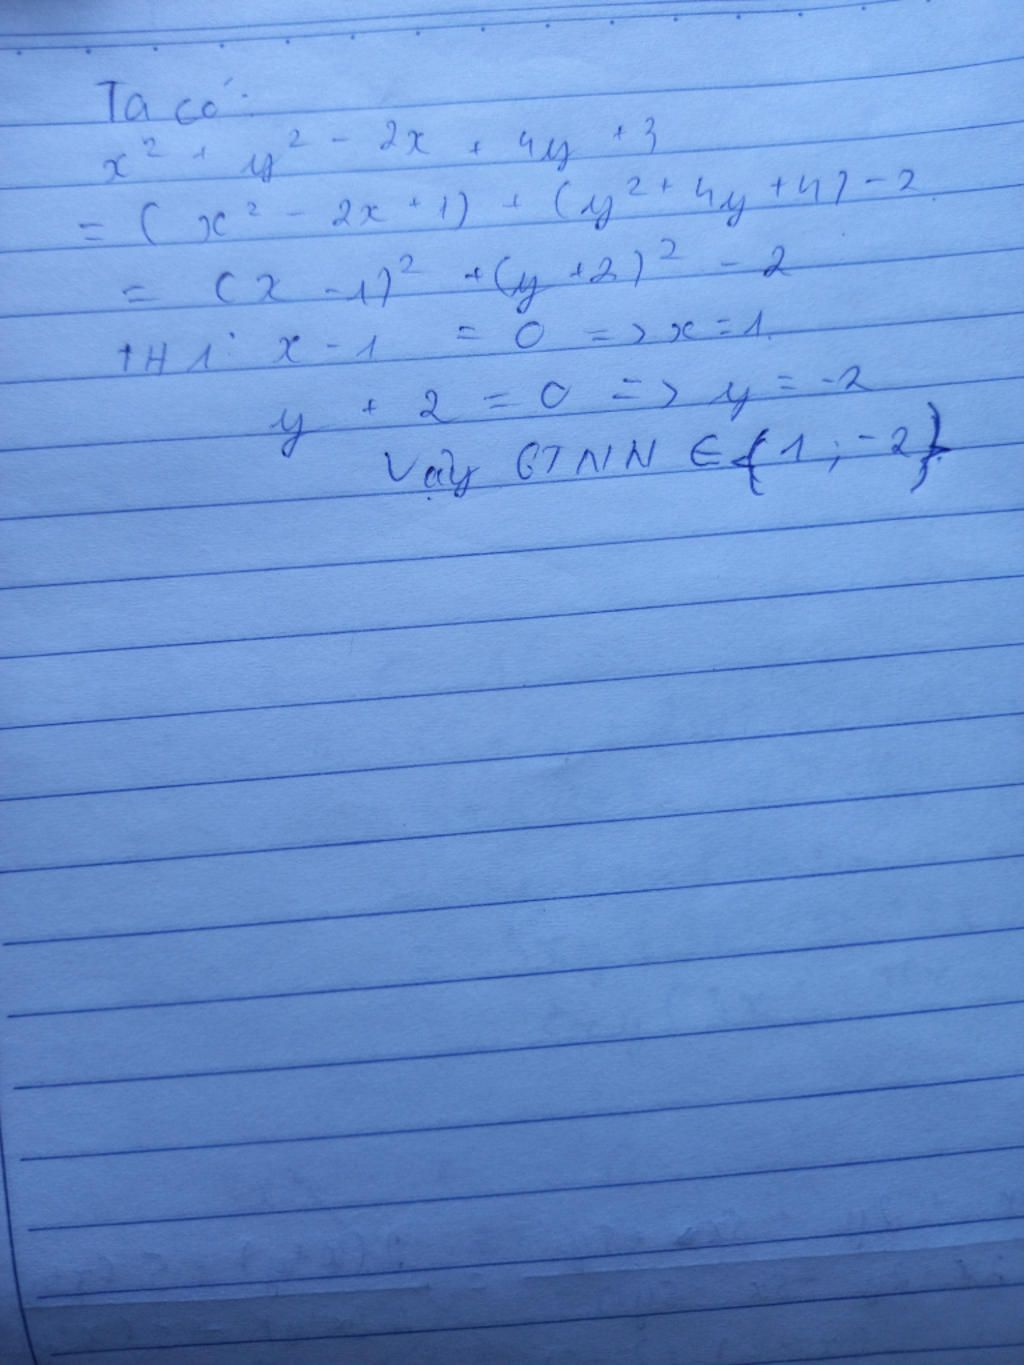 Ta có:
x² + y² - 2x + 4y + 3
= (x² - 2x + 1) + (y² + 4y + 4) - 2
= (x - 1)² + (y + 2)² - 2
TH1: x - 1 = 0 => x = 1
y + 2 = 0 => y = -2
Vậy GTNN ∈ {1; -2}